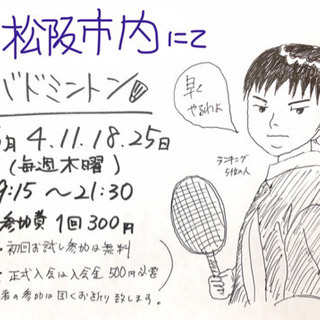 松阪市内にて
バドミントン
月 4.11.18.25日
(毎週木曜)
9:15〜21:30
参加費 1回300円
・初回お試し参加は無料
・正式入会は入会金500円必要
者の参加は固くお断り致します。
早く
やるわよ
ランキング
5位の人